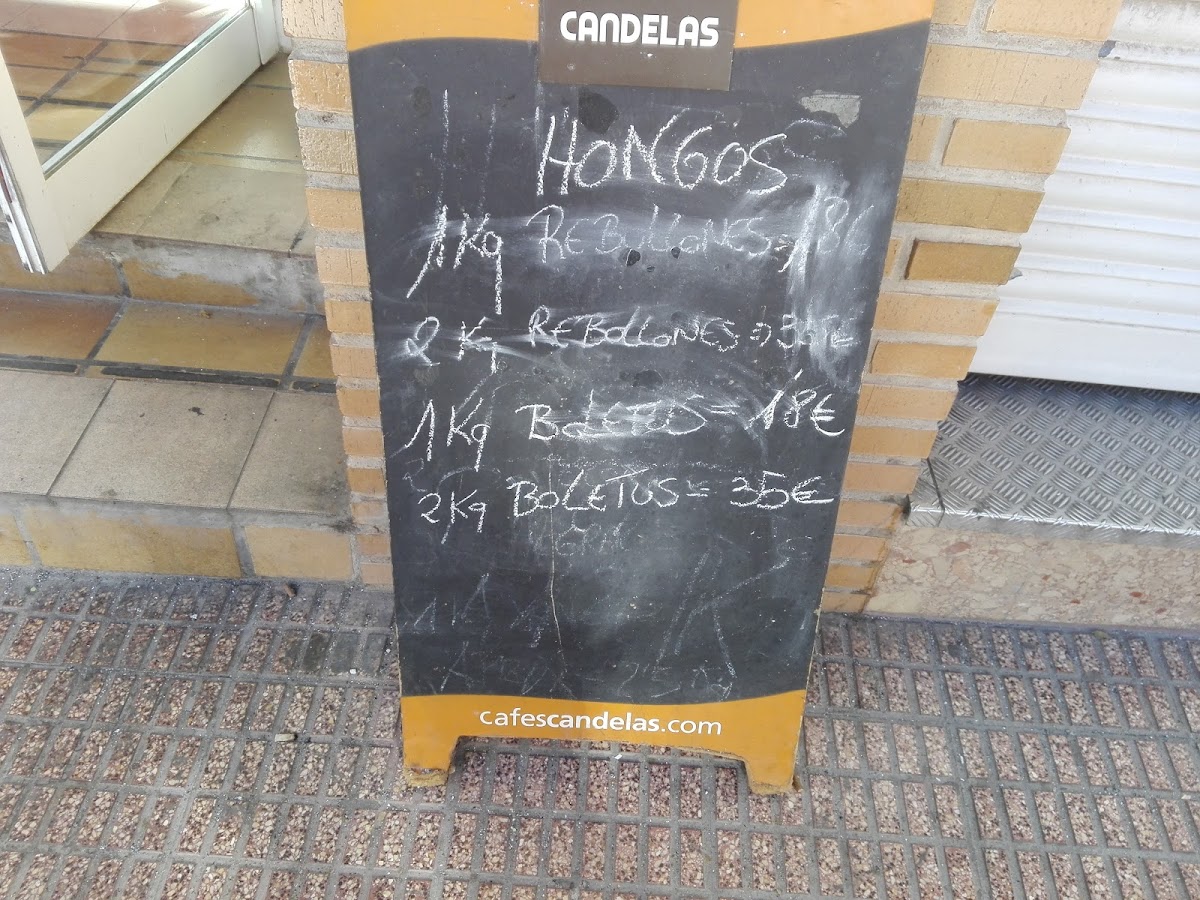 CANDELAS
HONGOS
1Kg REBOLLONES = 18€
2 Kg REBOLLONES =
1Kg BOLETUS = 18€
2Kg BOLETUS = 35€
cafescandelas.com